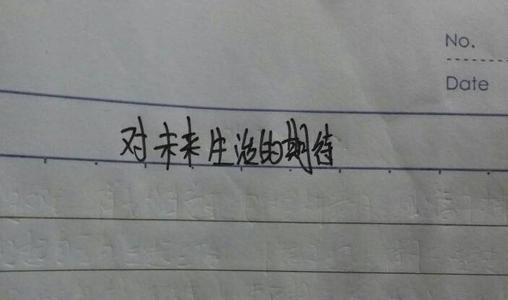 No.
Date
对未来生活的期待